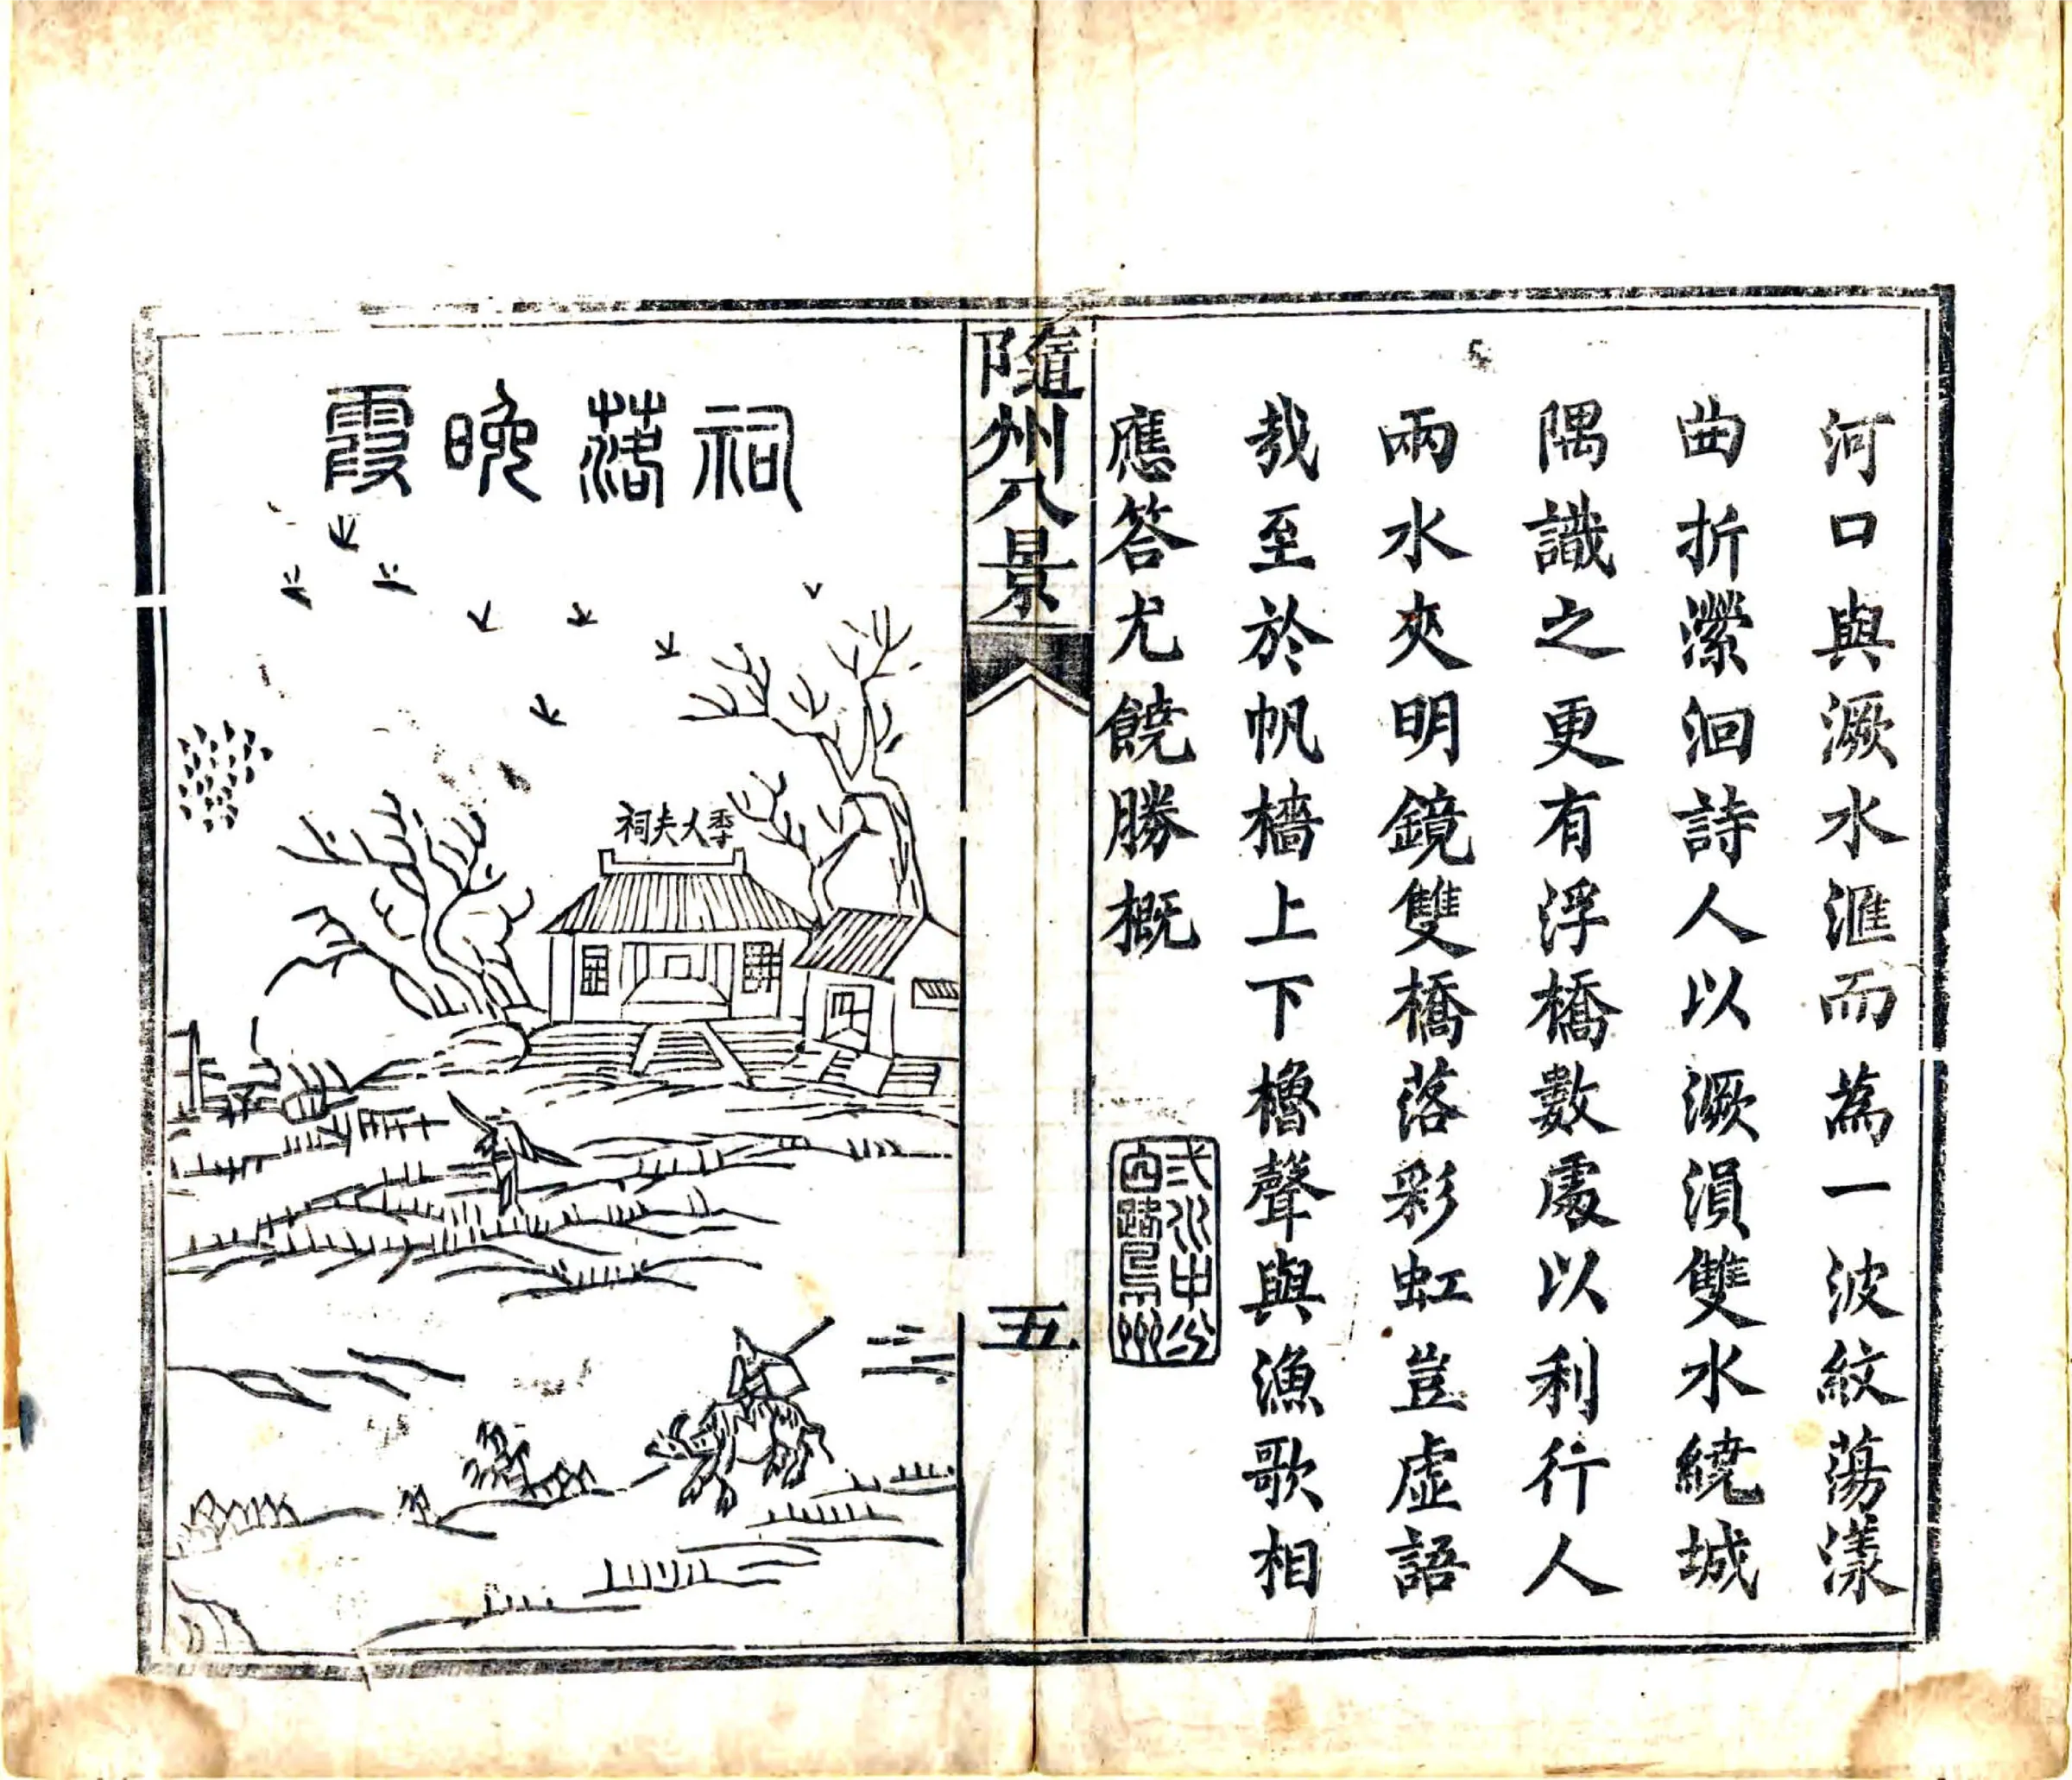 河口與㵐水滙而為一波紋蕩漾
曲折瀠洄詩人以㵐溳雙水繞城
隅識之更有浮橋數處以利行人
兩水夾明鏡雙橋落彩虹豈虛語
哉至於帆檣上下櫓聲與漁歌相
應答尤饒勝概
弍水中分
白鷺洲
隨州八景
五
祠落晚霞
季大夫祠